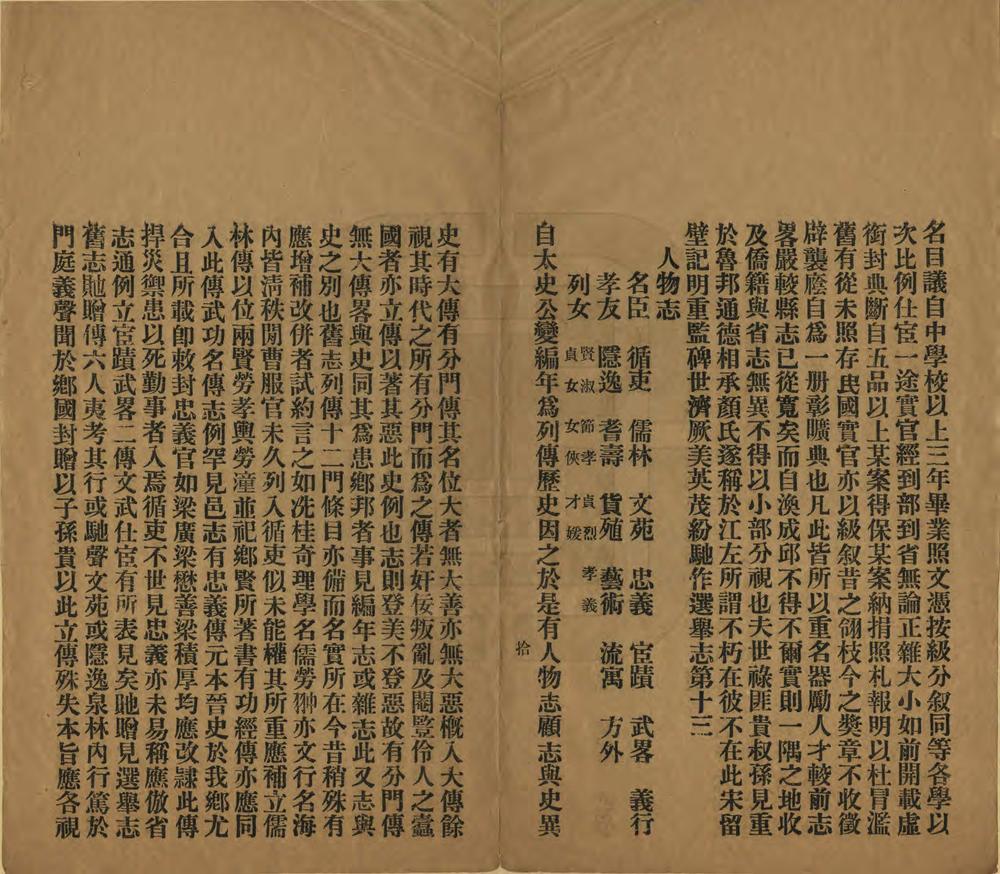 名目議自中學校以上三年畢業照文憑按級分叙同等各學以
次比例仕宦一途實官經到部到省無論正雜大小如前開載虛
銜封典斷自五品以上某案得保某案納捐照札報明以杜冒濫
舊有從未照存民國實官亦以級叙昔之翎枝今之獎章不收徵
辟襲廕自爲一册彰曠典也凡此皆所以重名器勵人才較前志
畧嚴較縣志已從寬矣而自渙成邱不得不爾實則一隅之地收
及僑籍與省志無異不得以小部分視也夫世祿匪貴叔孫見重
於魯邦通德相承顏氏遂稱於江左所謂不朽在彼不在此宋留
壁記明重監碑世濟厥美英茂紛馳作選舉志第十三
人物志
名臣 循吏 儒林 文苑 忠義 宦蹟 武畧 義行
孝友 隱逸 耆壽 貨殖 藝術 流寓 方外
列女 賢淑 節孝 貞烈 孝義 貞女 女俠 才媛
自太史公變編年爲列傳歷史因之於是有人物志顧志與史異
拾
史有大傳有分門傳其名位大者無大善亦無大惡概入大傳餘
視其時代之所有分門而爲之傳若奸佞叛亂及閹豎伶人之蠹
國者亦立傳以著其惡此史例也志則登美不登惡故有分門傳
無大傳畧與史同其爲患鄉邦者事見編年志或雜志此又志與
史之別也舊志列傳十二門條目亦備而名實所在今昔稍殊有
應增補改併者試約言之如冼桂奇理學名儒勞翀亦文行名海
內皆淸秩閒曹服官未久列入循吏似未能權其所重應補立儒
林傳以位兩賢勞孝輿勞潼並祀鄉賢所著書有功經傳亦應同
入此傳武功名傳志例罕見邑志有忠義傳元本晉史於我鄉尤
合且所載卽敕封忠義官如梁廣梁懋善梁積厚均應改隷此傳
捍災禦患以死勤事者入焉循吏不世見忠義亦未易稱應倣省
志通例立宦蹟武畧二傳文武仕宦有所表見矣貤贈見選舉志
舊志貤贈傳六人夷考其行或馳聲文苑或隱逸泉林內行篤於
門庭義聲聞於鄉國封贈以子孫貴以此立傳殊失本旨應各視